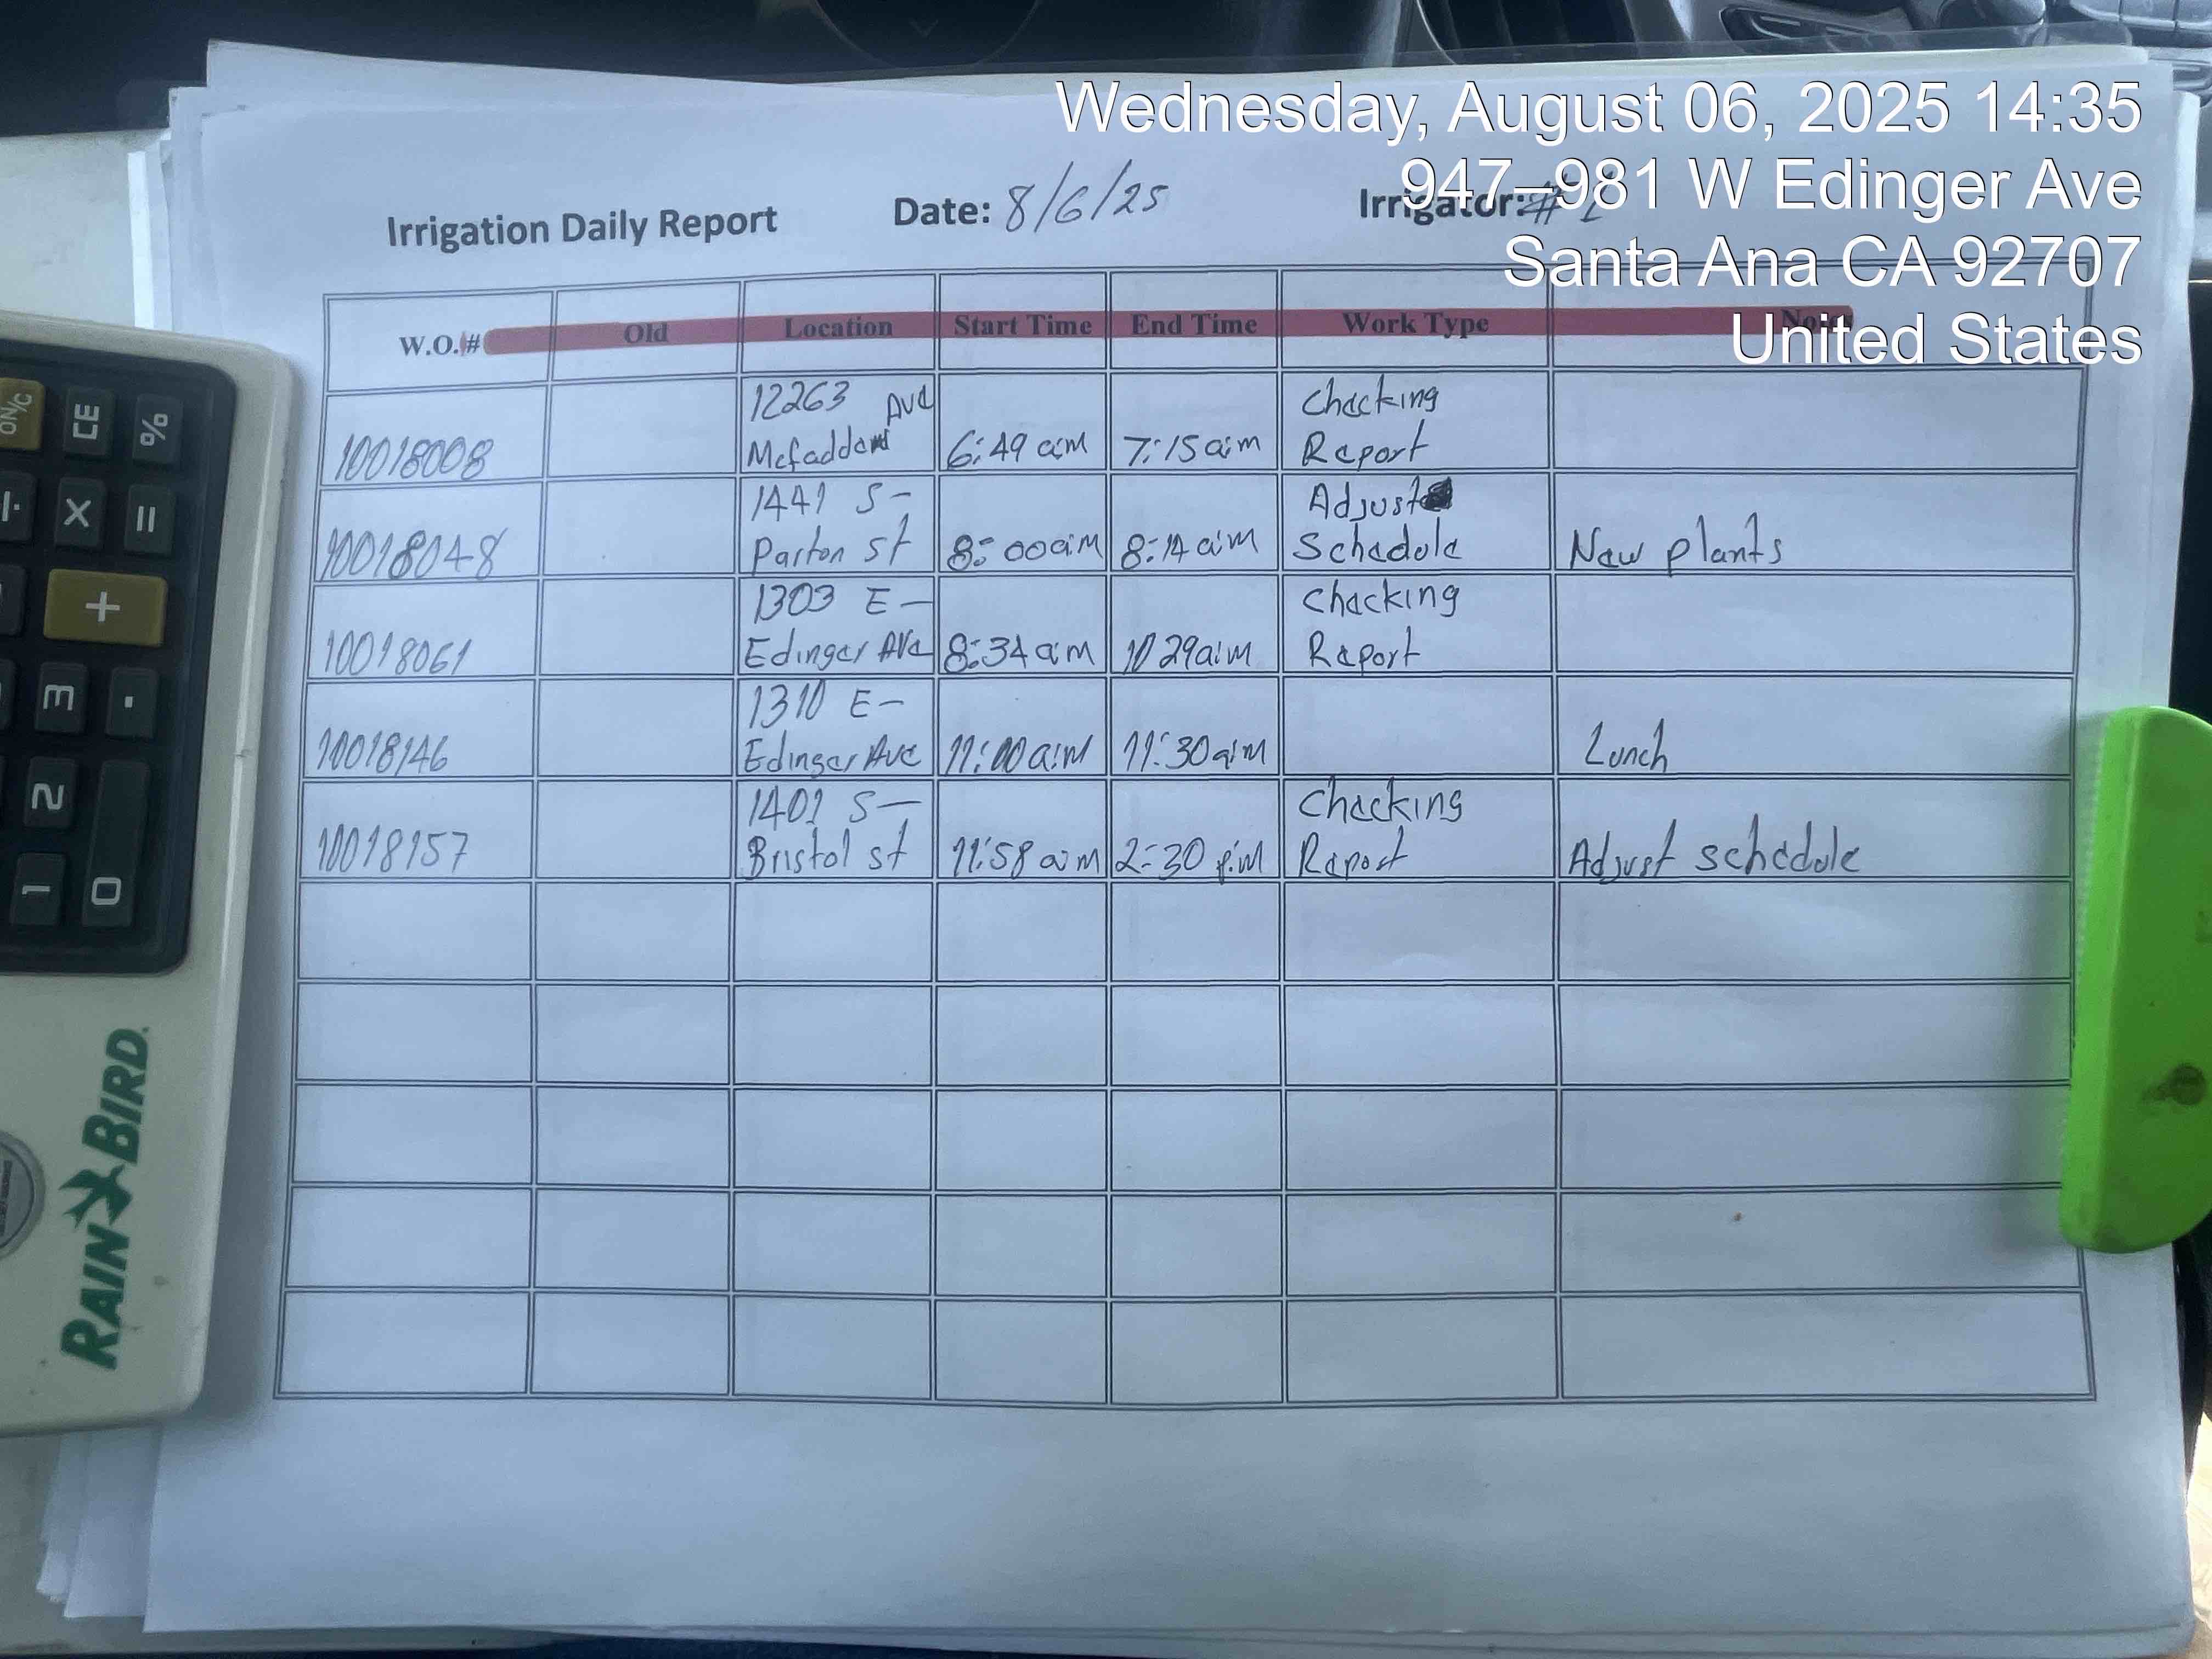 Wednesday, August 06, 2025 14:35
947–981 W Edinger Ave
Santa Ana CA 92707
United States
Irrigation Daily Report Date: 8/6/25 Irrigator: #
W.O.# Old Location Start Time End Time Work Type
12263 Ave Checking
10018008 Mcfadden 6:49 a:m 7:15 a:m Report
1441 S- Adjust
10018048 Parton st 8:00 a:m 8:14 a:m Schedole New plants
1303 E- Checking
10018061 Edinger Ave 8:34 a:m 10 29 a:m Report
1310 E-
10018146 Edinger Ave 11:00 a:m 11:30 a:m Lunch
1401 S- Checking
10018157 Bristol st 11:58 a:m 2:30 p:m Report Adjust schedole
ON/C CE %
÷ X =
+
3 .
2
1 0
RAIN BIRD